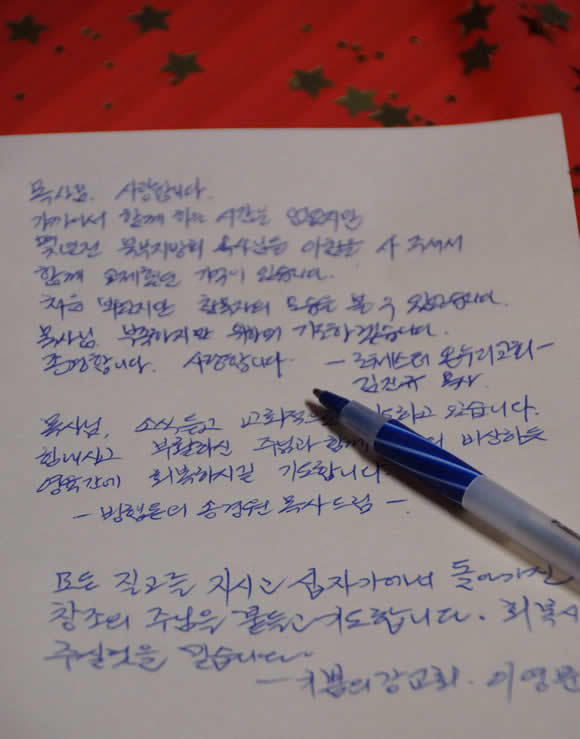 목사님. 사랑합니다.
가까이서 함께 하는 시간은 없었지만
몇년전 북부지방회 목사님들 아침을 사 주셔서
함께 교제했던 기억이 있습니다.
처음 뵈었지만 참목자의 모습을 볼 수 있었습니다.
목사님. 부족하지만 위하여 기도하겠습니다.
존경합니다. 사랑합니다. - 로체스터 온누리교회 -
김진규 목사.
목사님, 소식듣고 교회적으로 기도하고 있습니다.
힘내시고 부활하신 주님과 함께 비상하듯
영육간에 회복하시길 기도합니다
- 빙햄튼의 송경원 목사드림 -.
모든 질고를 지시고 십자가에서 돌아가신
창조의 주님을 붙들고 기도합니다. 회복시
주실것을 믿습니다.
- 기쁨의강교회. 이영